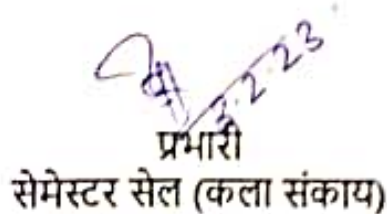 3.2.23
प्रभारी
सेमेस्टर सेल (कला संकाय)